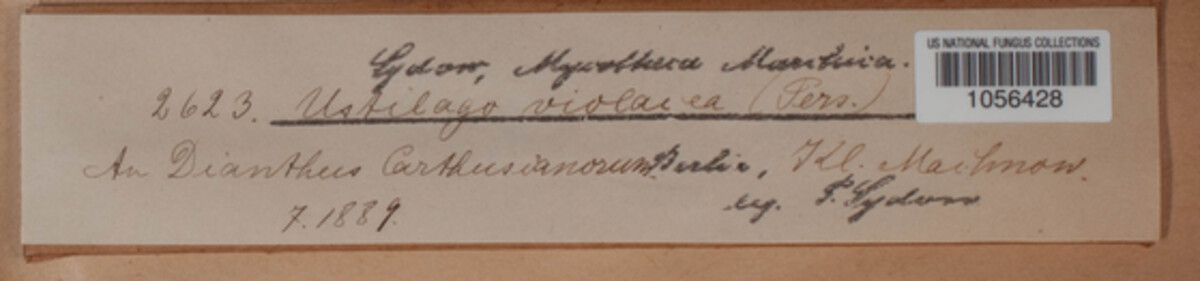 Sydow, Mycotheca Marchica.
2623. Ustilago violacea (Pers.)
An Dianthus Carthusianorum. Berlin, Kl. Machnow.
7. 1889.
leg. P. Sydow
US NATIONAL FUNGUS COLLECTIONS
1056428